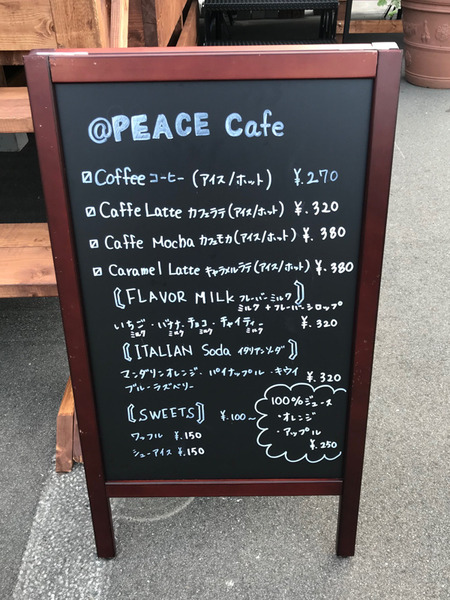 @PEACE Cafe
☑ Coffee コーヒー (アイス/ホット) ¥.270
☑ Caffe Latte カフェラテ (アイス/ホット) ¥.320
☑ Caffe Mocha カフェモカ (アイス/ホット) ¥.380
☑ Caramel Latte キャラメルラテ (アイス/ホット) ¥.380
〘FLAVOR MILK フレーバーミルク〙
ミルク + フレーバーシロップ
いちごミルク・バナナミルク・チョコミルク・チャイティーミルク ¥.320
〘ITALIAN Soda イタリアンソーダ〙
マンダリンオレンジ・パイナップル・キウイ
ブルーラズベリー ¥.320
〘SWEETS〙 ¥.100~
ワッフル ¥.150
シューアイス ¥.150
100%ジュース
・オレンジ
・アップル
¥.250